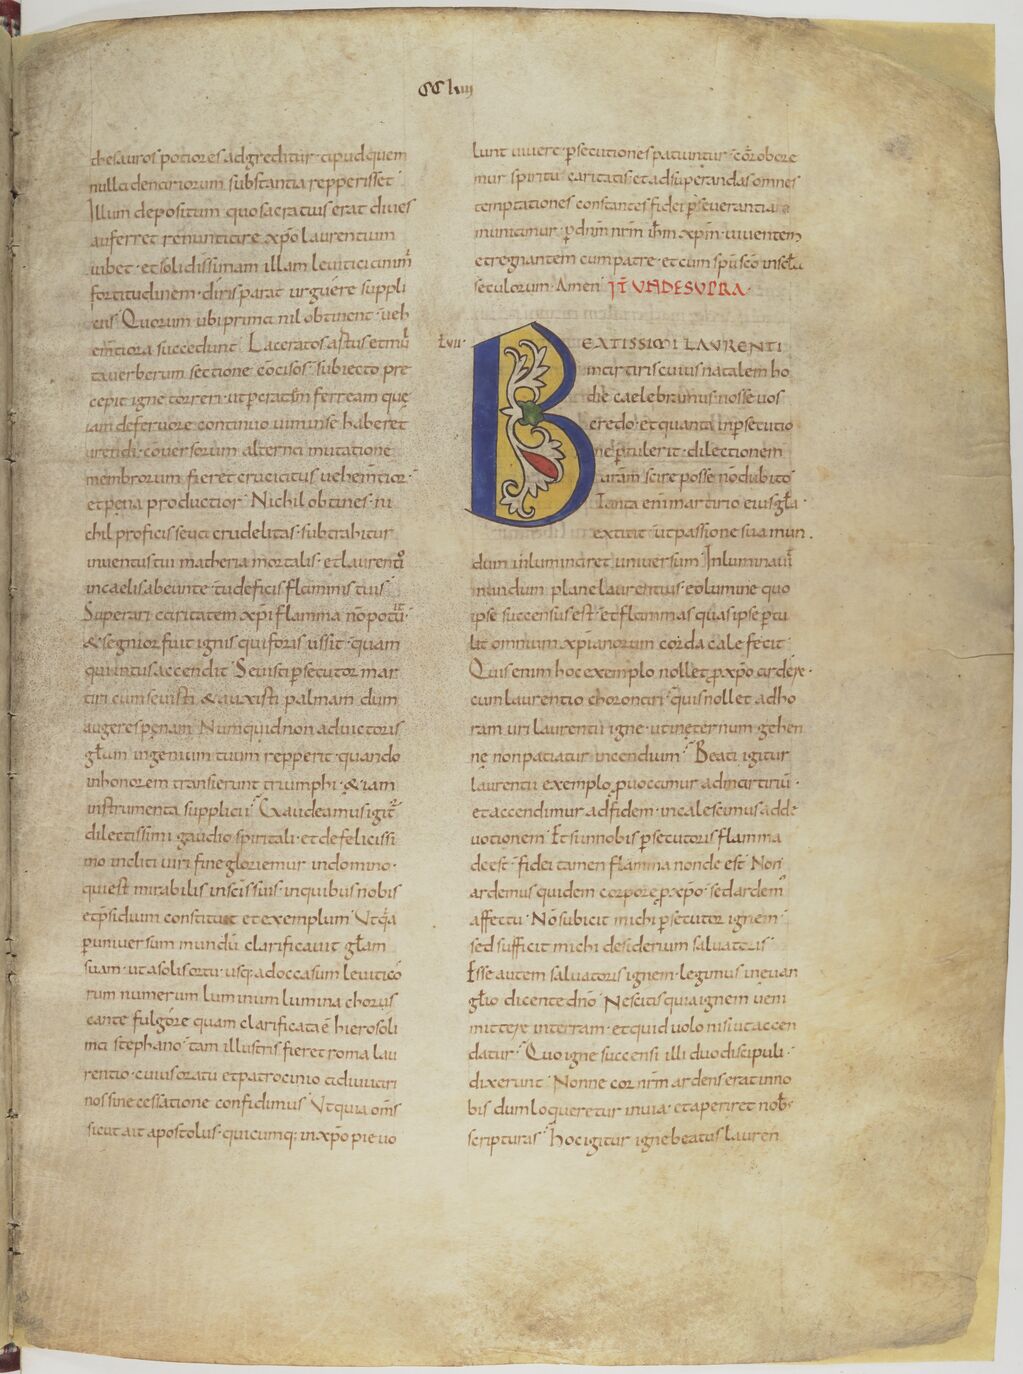 CCLiii
thesauros potiores adgreditur· apud quem
nulla denariorum substantia repperisset·
Illum depositum quo sacratius erat dives
auferret renunticire xp̄o laurentium
iubet· et solidissimam illam leuitici animi
fortitudinem· diris parat urguere suppli
ciis· Quorum ubi prima nil obtinent· ueh
em̄tiora succedunt· Laceratos artus et mul
ta uerberum sectione cōcisos· subiecto pre
cepit igne torreri· ut per cratem ferream quę
iam de feruore continuo uim in se haberet
urendi· cōuersorum alterna mutatione
membrorum fieret cruciatus uehem̄tior·
et pena productior· Nichil obtines· ni
chil proficis seua crudelitas· subtrahitur
inuentis tuis matheria mortalis· et laurentio
in caelis abeunte· tu deficis flammis tuis·
Superari caritatem xp̄i flamma nō potuit·
& segnior fuit ignis qui foris ussit· quam
qui intus accendit· Seuisti ꝑsecutor mar
tiri cum seuisti· & auxisti palmam dum
augeres penam· Num quid non ad uictoris
gl̄am ingenium tuum repperit· quando
in honorem transierunt triumphi· & iam
instrumenta supplicii· Gaudeamus igit
dilectissimi gaudio spiritali· et de felicissi
mo incliti uiri fine gloriemur in domino·
qui est mirabilis in sc̄is suis· in quibus nobis
et p̄sidium constituit et exemplum· Vt qa
ꝑ uniuersum mundū clarificauit gl̄am
suam· ut a solis ortu· usq; ad occasum leuiticō
rum numerum luminum lumina chorus
cante fulgore quam clarificata ē hierosoli
ma stephano· tam illustris fieret roma lau
rentio· cuius oratu et patrocinio adiuuari
nos sine cessatione confidimus· Vt quia om̄s
sicut ait apostolus· quicumq; in xp̄o pie uo
lunt uiuere ꝑsecutiones patiuntur· cōrobore
mur spiritu caritatis et ad superandas omnes
temptationes constantes fidei ꝑseuerantia
muniamur· ꝑ dn̄m nr̄m ih̄m xp̄m· uiuentem
et regnantem cum patre· et cum sp̄u sc̄o in secula
seculorum· Amen· IT̄ UNDE SUPRA·
Lvii·
BEATISSIMI LAURENTI
martiris cuius natalem ho
die caelebramus· nosse uos
credo· et quanta in ꝑsecutio
ne ꝑtulerit· dilectionem
ur̄am scire posse nō dubito
Tanta eni martirio eius gl̄a
extitit· ut passione sua mun
dum inluminaret uniuersum· Inluminauit
mundum plane laurentius· eo lumine quo
ipse succensus est· et flammas quas ipse ꝑtu
lit omnium xp̄ianorum corda calefecit·
Quis enim hoc exemplo nollet ꝓ xp̄o ardere·
cum laurentio choronari· quis nollet ad ho
ram uri laurentii igne· ut in eternum gehen
ne non patiatur incendium· Beati igitur
laurentii exemplo ꝓuocamur ad martiriū·
et accendimur ad fidem· incalescimus ad de
uotionem· Et si in nobis ꝑsecutoris flamma
deest· fidei tamen flamma non deest· Non
ardemus quidem corpore ꝓ xp̄o· sed ardem
affectu· Nō subicit michi ꝑsecutor ignem·
sed sufficit michi desiderium saluatoris·
Esse autem saluatoris ignem· legimus in euan
gl̄io dicente dn̄o· Nescitis quia ignem ueni
mittere in terram· et quid uolo nisi ut accen
datur· Quo igne succensi illi duo discipuli·
dixerunt· Nonne cor nr̄m ardens erat in no
bis dum loqueretur in uia· et aperiret nob̄
scripturas· Hoc igitur igne beatus lauren